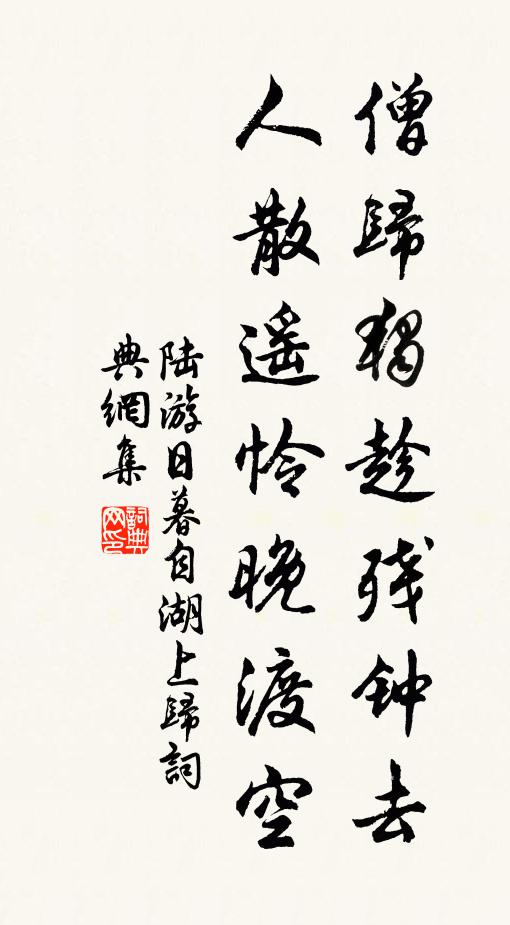 僧歸獨趁残钟去
人散遥怜晚渡空
陆游日暮自湖上歸詞
典網集
詞典网印